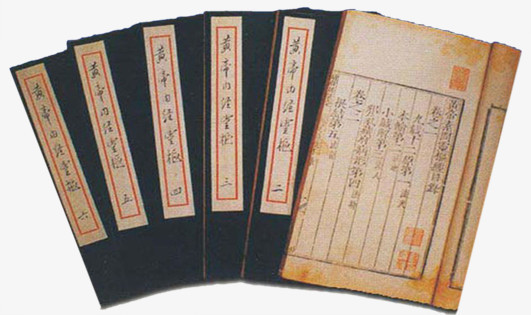 黃帝素問靈樞經目錄
卷之一
九鍼十二原第一 法天
本輸第二 法地
小鍼解第三 法人
邪氣藏府病形第四 法時
卷之二
根結第五 法音
黃帝内经靈樞 二
黃帝内经靈樞 三
黃帝内经靈樞 四
黃帝内经靈樞 五
黃帝内经靈樞 六